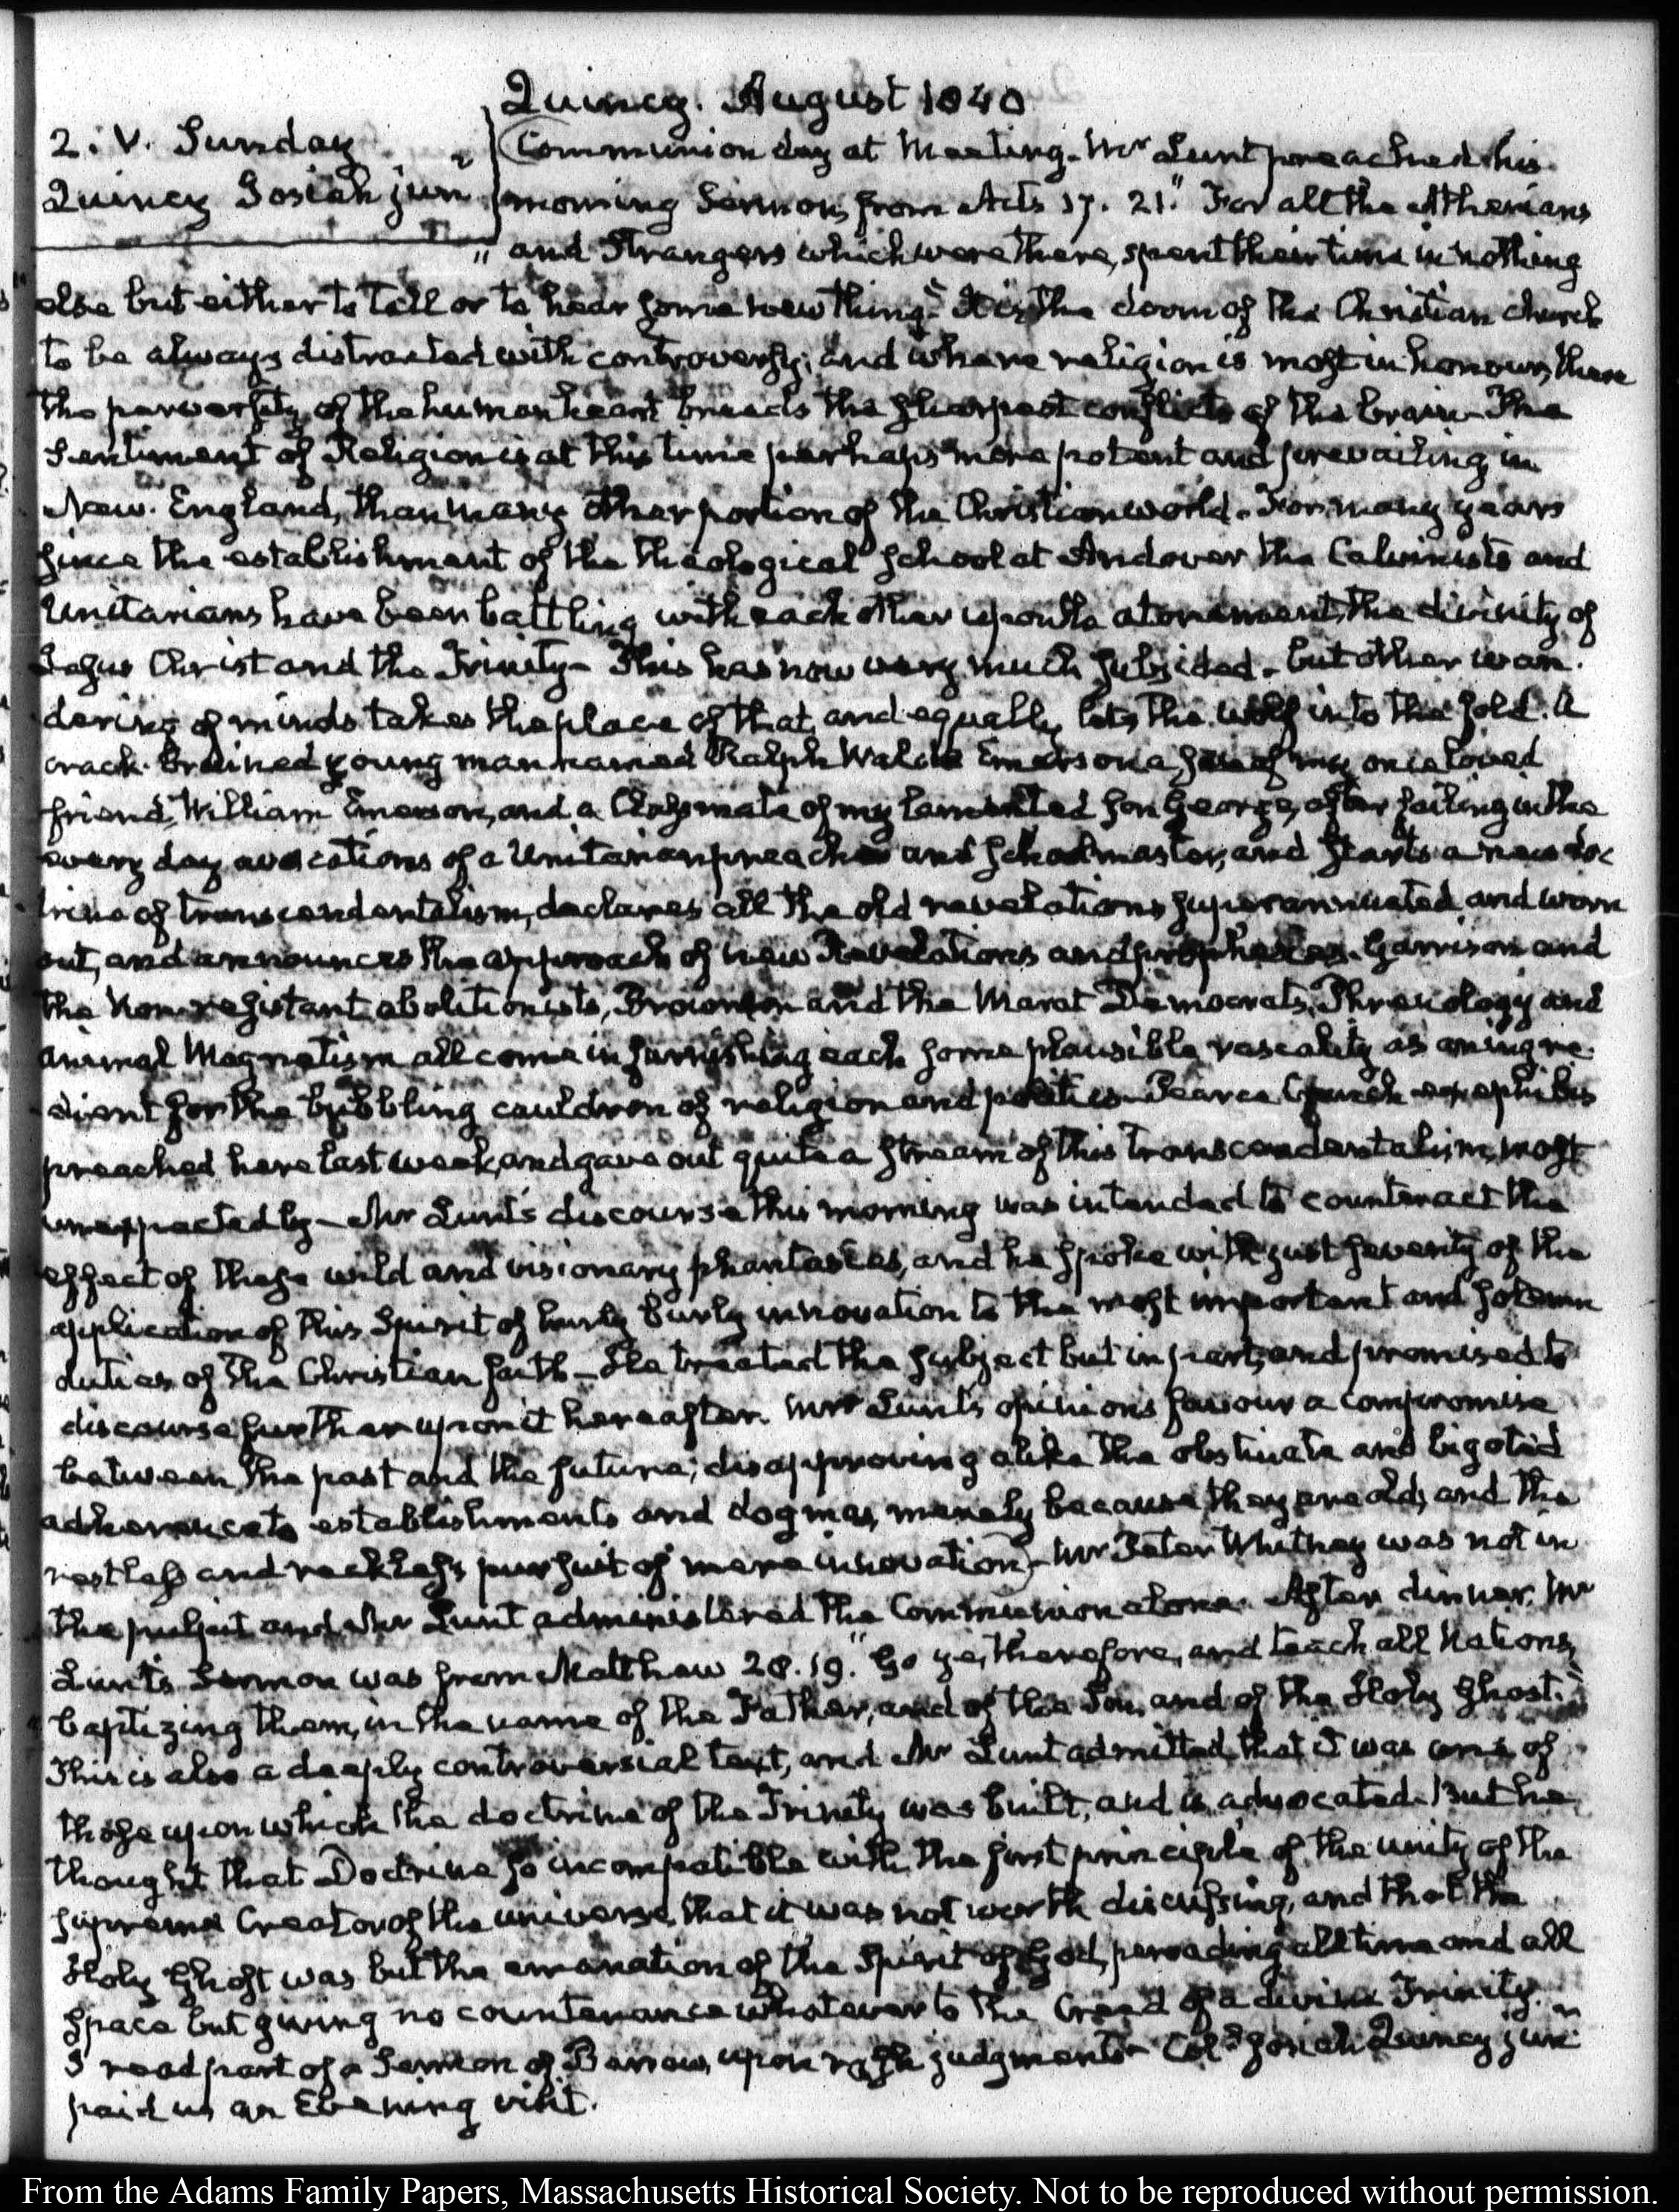 Quincy. August 1840
2. V. Sunday
Quincy Josiah junr
Communion day at Meeting. Mr Lunt preached his
morning Sermon, from Acts 17. 21. "For all the Athenians
" and Strangers which were there, spent their time in nothing
else but either to tell or to hear some new thing." It is the doom of the Christian church
to be always distracted with controversy; and where religion is most in honour, there
the perversity of the human heart breeds the sharpest conflicts of the brain. The
Sentiment of Religion is at this time perhaps more potent and prevailing in
New. England, than in any other portion of the Christian world. For many years
since the establishment of the theological school at Andover the Calvinists and
Unitarians have been battling with each other upon the atonement, the divinity of
Jesus Christ and the Trinity. This has now very much subsided. but other wan-
dering of minds takes the place of that, and equally lets the wolf into the fold. A
crack-brained young man named Ralph Waldo Emerson a son of my once loved
friend William Emerson, and a Classmate of my lamented son George, after failing in the
every day avocations of a Unitarian preacher and schoolmaster, and starts a new doc
trine of transcendentalism, declares all the old revelations superannuated and worn
out, and announces the approach of new Revelations and prophecies. Garrison and
the Non-resistant abolitionists, Brownson and the Marat Democrats, Phrenology and
animal Magnetism all come in furnishing each some plausible rascality as an ingre-
dient for the bubbling cauldron of religion and politics. Pearce Church ex ephebis
preached here last week, and gave out quite a stream of this transcendentalism, most
unexpectedly. Mr Lunt's discourse this morning was intended to counteract the
effect of these wild and visionary phantasies, and he spoke with just severity of the
application of this Spirit of hurly burly innovation to the most important and solemn
duties of the Christian faith. He treated the subject but in part, and promised to
discourse further upon it hereafter. Mr Lunt's opinions favour a compromise
between the past and the future; disapproving alike the obstinate and bigoted
adherence to establishments and dogmas, merely because they are old; and the
restless and reckless pursuit of mere innovation. Mr Peter Whitney was not in
the pulpit and Mr Lunt administered the Communion alone. After dinner, Mr
Lunt's Sermon was from Matthew 28. 19. "Go ye, therefore, and teach all Nations,
baptizing them, in the name of the Father, and of the Son, and of the Holy Ghost."
This is also a deeply controversial text, and Mr Lunt admitted that it was one of
those upon which the doctrine of the Trinity was built, and is advocated. But he
thought that Doctrine so incompatible with the first principle of the unity of the
supreme Creator of the universe, that it was not worth discussing, and that the
Holy Ghost was but the emanation of the Spirit of God, pervading all time and all
space but giving no countenance whatever to the Creed of a divine Trinity.
I read part of a Sermon of Barrow, upon rash judgments. Coll Josiah Quincy junr
paid us an Evening visit.
From the Adams Family Papers, Massachusetts Historical Society. Not to be reproduced without permission.